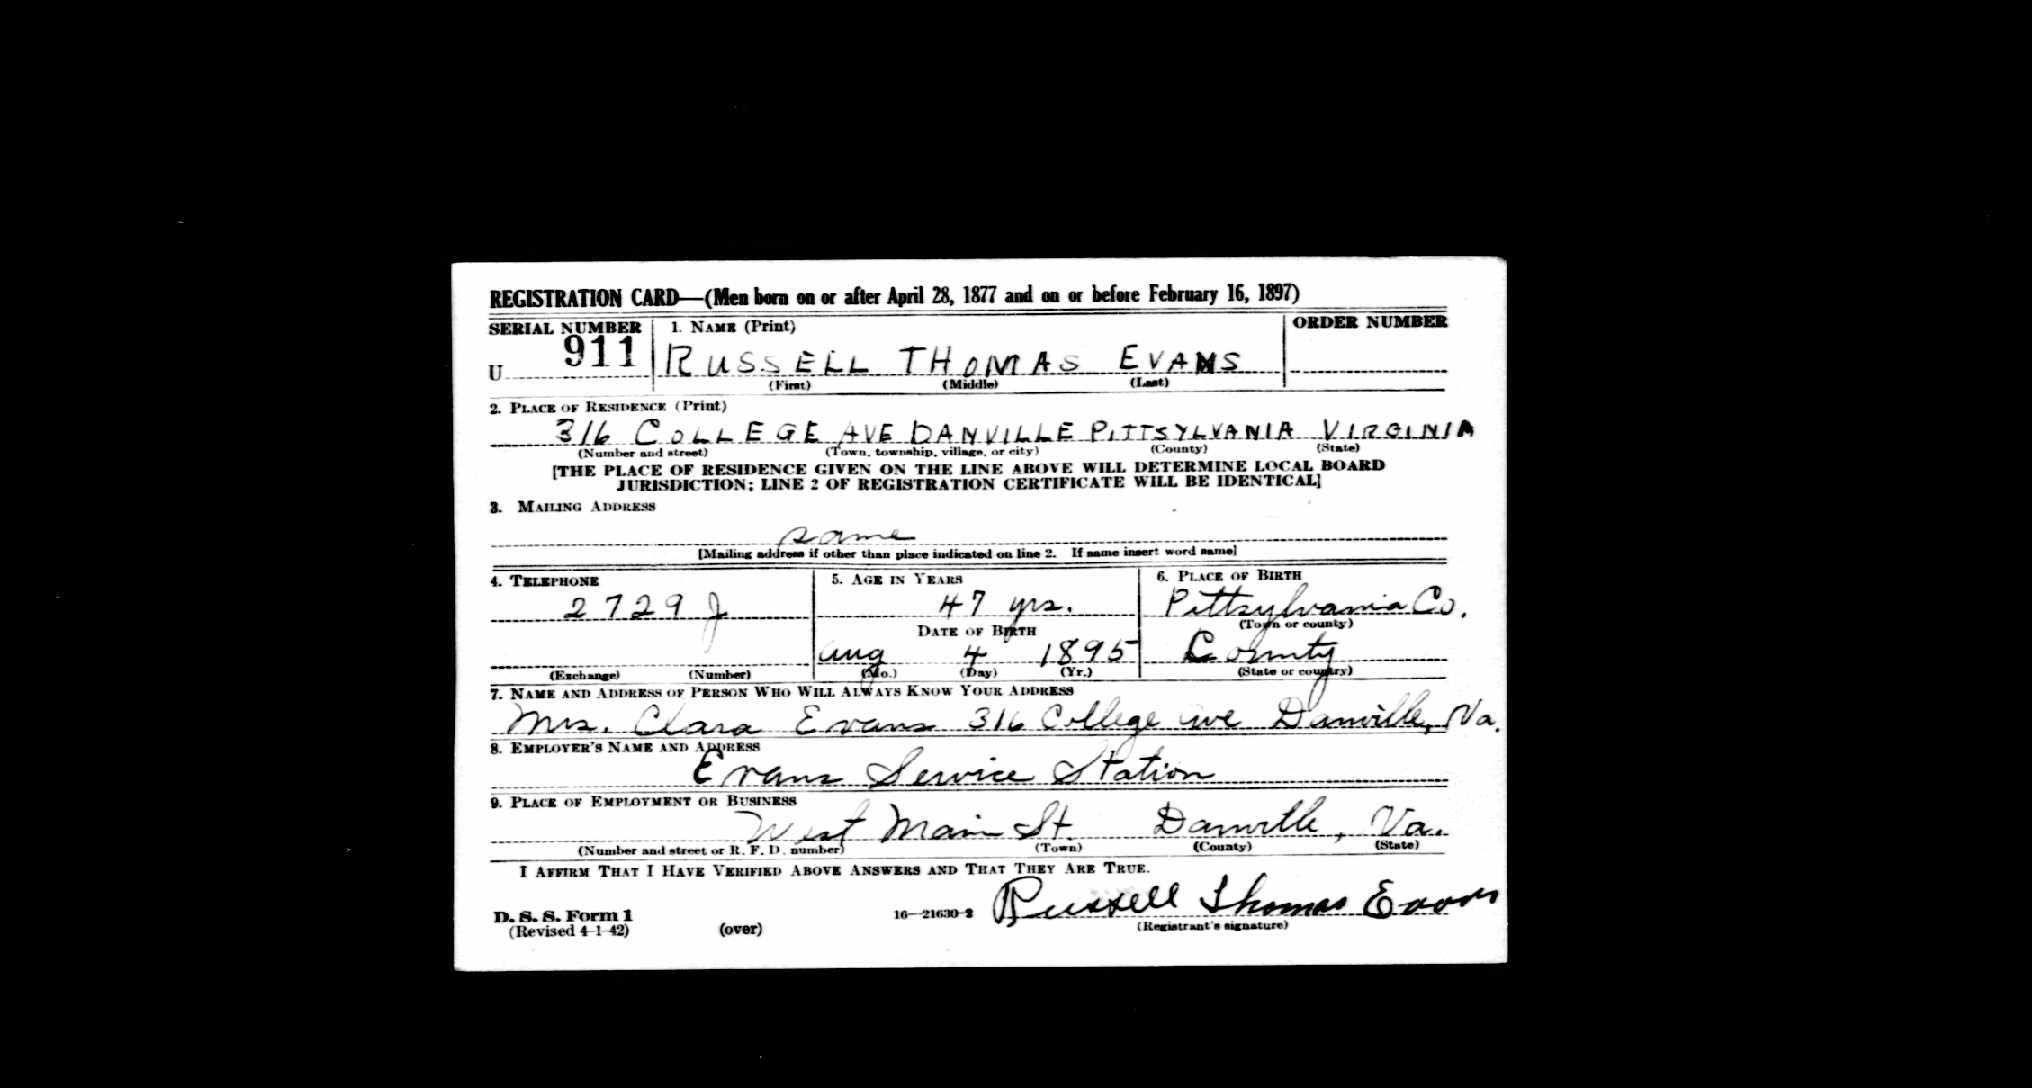 REGISTRATION CARD—(Men born on or after April 28, 1877 and on or before February 16, 1897)
SERIAL NUMBER 1. NAME (Print) ORDER NUMBER
U 911 RUSSELL THOMAS EVANS
(First) (Middle) (Last)
2. PLACE OF RESIDENCE (Print)
316 COLLEGE AVE DANVILLE PITTSYLVANIA VIRGINIA
(Number and street) (Town, township, village, or city) (County) (State)
[THE PLACE OF RESIDENCE GIVEN ON THE LINE ABOVE WILL DETERMINE LOCAL BOARD
JURISDICTION; LINE 2 OF REGISTRATION CERTIFICATE WILL BE IDENTICAL]
3. MAILING ADDRESS
same
[Mailing address if other than place indicated on line 2. If same insert word same]
4. TELEPHONE 5. AGE IN YEARS 6. PLACE OF BIRTH
2729 J 47 yrs. Pittsylvania Co.
DATE OF BIRTH (Town or county)
Aug 4 1895 County
(Exchange) (Number) (Mo.) (Day) (Yr.) (State or country)
7. NAME AND ADDRESS OF PERSON WHO WILL ALWAYS KNOW YOUR ADDRESS
Mrs. Clara Evans 316 College Ave Danville, Va.
8. EMPLOYER'S NAME AND ADDRESS
Evans Service Station
9. PLACE OF EMPLOYMENT OR BUSINESS
West Main St. Danville, Va.
(Number and street or R. F. D. number) (Town) (County) (State)
I AFFIRM THAT I HAVE VERIFIED ABOVE ANSWERS AND THAT THEY ARE TRUE.
Russell Thomas Evans
D. S. S. Form 1 16—21630-2
(Revised 4-1-42) (over) (Registrant's signature)